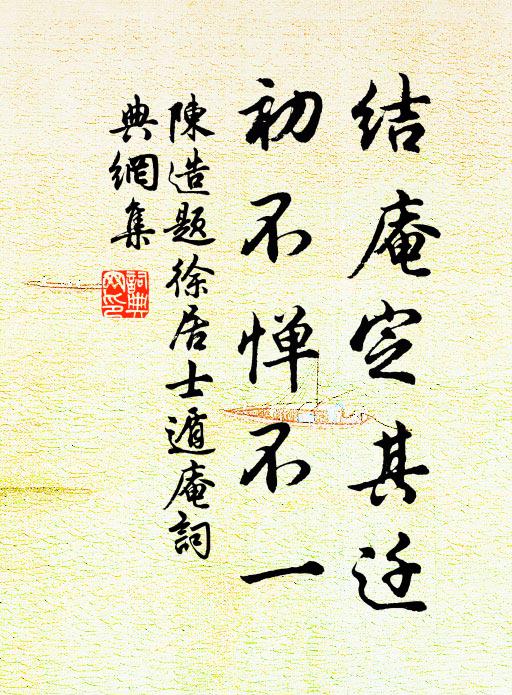 结庵定其迁
初不惮不一
陳造题徐居士遁庵詞
典網集
詞典
网印